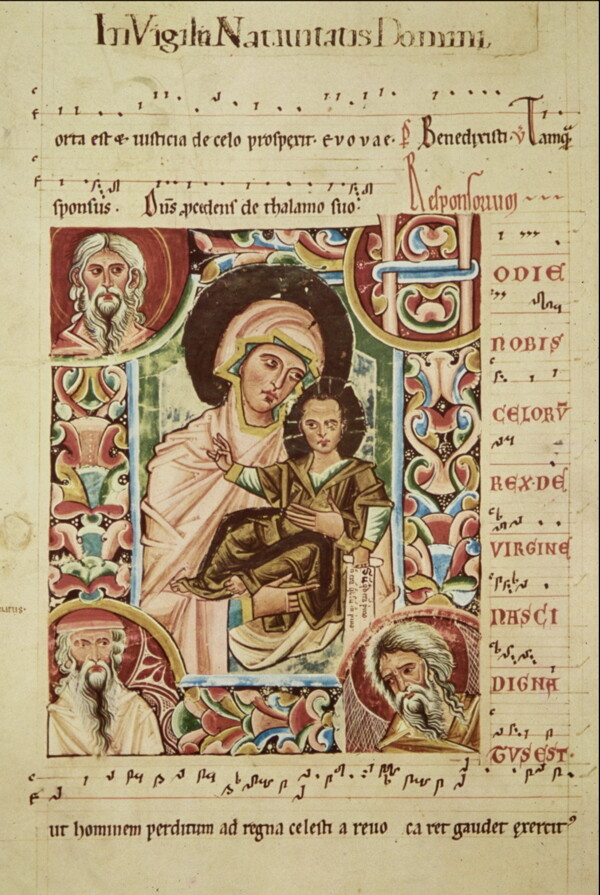 In Vigilia Natiuitatis Domini
orta est & iusticia de celo prospexit. e v o v a e. Benedixisti. Tamq̄
sponsus. Dn̄s pcedens de thalamo suo. Responsorium
H
ODIE
NOBIS
CELORV̄
REX·DE
VIRGINE
NASCI
natus·
DIGNA
TVS EST·
ut hominem perditum ad regna celesti a reuo ca ret gaudet exercitꝰ